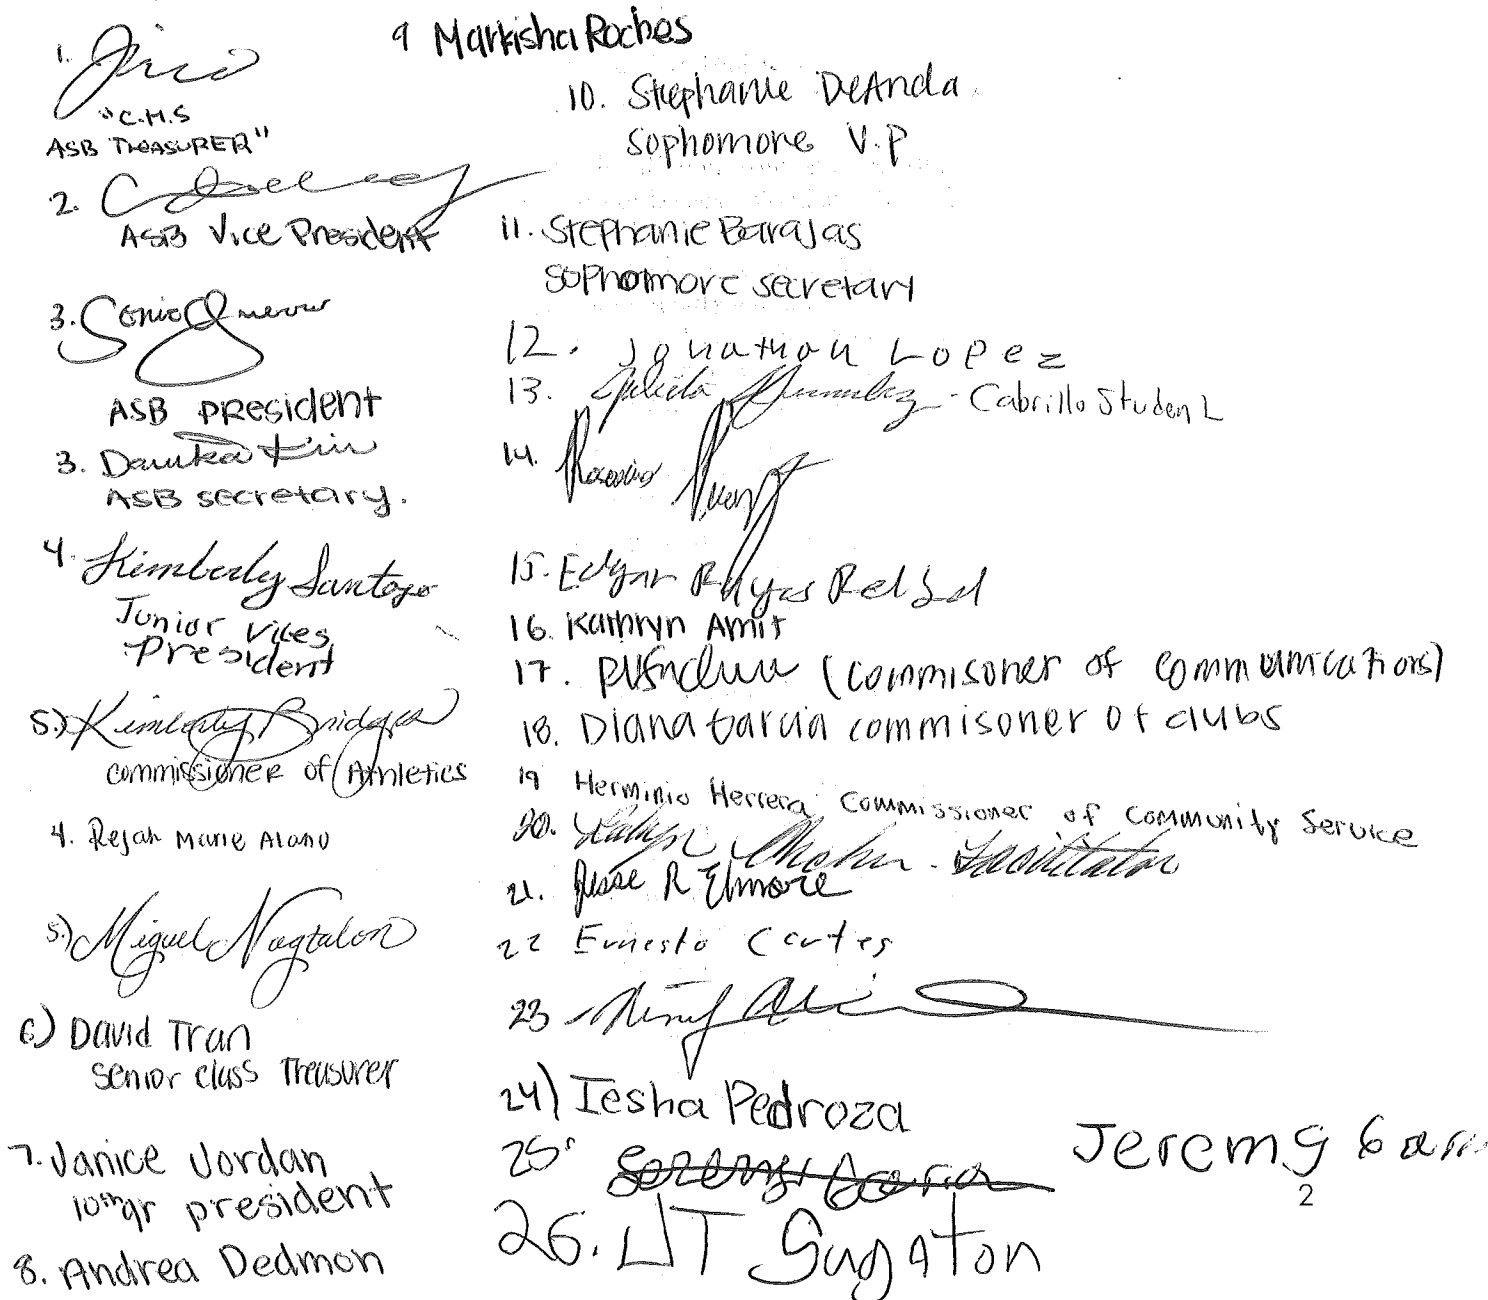 1.
"C.H.S
ASB TREASURER"
2.
ASB Vice President
3. Sonia
ASB president
3. Danika Kim
ASB secretary.
4. Kimberly Santoyo
Junior Vices
President
5.) Kimberly Bridges
commissioner of Athletics
4. Rejah Marie Alano
5.) Miguel Nagtalon
6.) David Tran
senior class Treasurer
7. Janice Jordan
10th gr president
8. Andrea Dedmon
9 Markisha Roches
10. Stephanie DeAnda
Sophomore V.P
11. Stephanie Barajas
sophomore secretary
12. Jonathon Lopez
13. - Cabrillo Student
14.
15. Edgar Reyes
16. Kathryn Amit
17. (commisoner of communications)
18. Diana Garcia commisoner of clubs
19 Herminio Herrera Commissioner of Community Service
20. - Facilitator
21. Jesse R Elmore
22 Ernesto Cortes
23
24) Iesha Pedroza
25. Jeremy
26. JT Sugaton
2